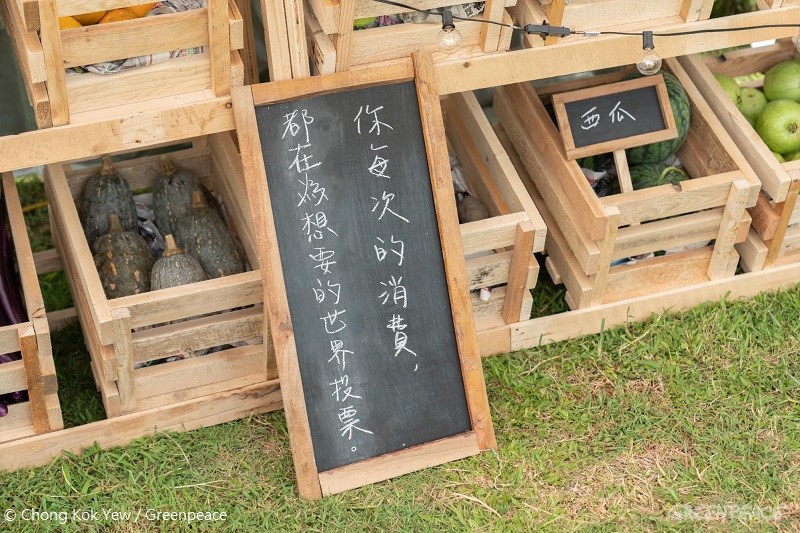 你每次的消費，
都在為想要的世界投票。
西瓜
© Chong Kok Yew / Greenpeace
GREENPEACE